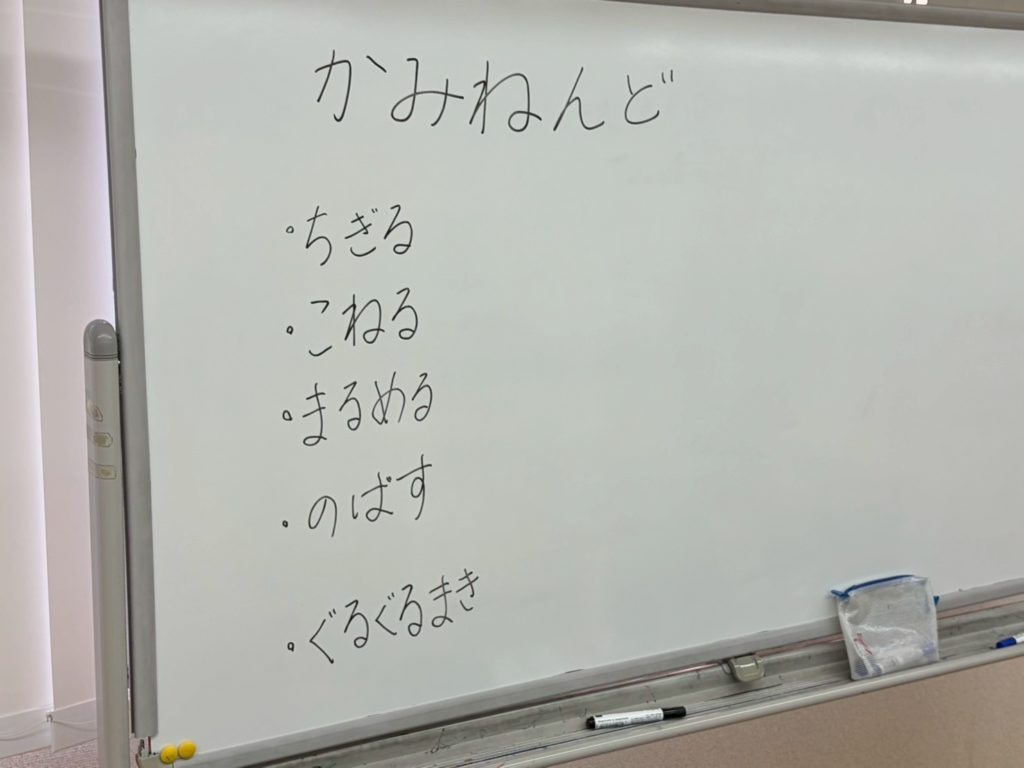 かみねんど
・ちぎる
・こねる
・まるめる
・のばす
・ぐるぐるまき